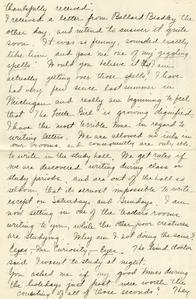 thankfully received.
I received a letter from Ballard Beasley the
other day, and intend to answer it quite
soon. It was so funny, sounded really
like him and gave me one of my giggling
spells? Would you believe it that I am
actually getting over those spells? I have
had very few since last summer in
Michigan and really am beginning to feel
that "The Goode Girl" is growing dignified.
I have the most terrible time in regard to
writing letters. We are allowed no ink in
our rooms, and consequently are only able
to write in the study hall. We get rules if
we are discovered writing during class or
study periods. And we are out of the hall so
seldom, that its almost impossible to write
except on Saturdays and Sundays. I am
now sitting in one of the teachers rooms
writing to you, while the other poor creatures
are studying. Why am I not doing the same
Eyes - Mr. Curiosity - Eyes. The kind doctor
said I wasn't to study at night.
You asked me if my good times during
the holidays just past were worth the
counting of all those seconds? The